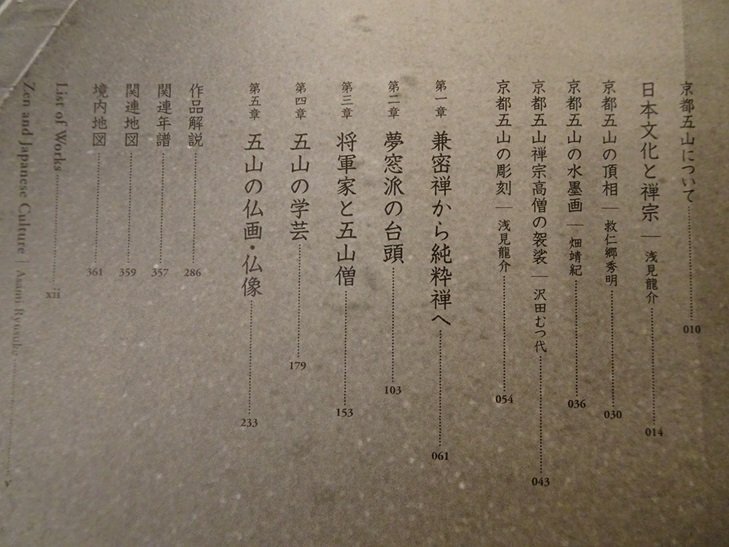 京都五山について 010
日本文化と禅宗 ― 浅見龍介 014
京都五山の頂相 ― 救仁郷秀明 030
京都五山の水墨画 ― 畑靖紀 036
京都五山禅宗高僧の袈裟 ― 沢田むつ代 043
京都五山の彫刻 ― 浅見龍介 054
第一章 兼密禅から純粋禅へ 061
第二章 夢窓派の台頭 103
第三章 将軍家と五山僧 153
第四章 五山の学芸 179
第五章 五山の仏画・仏像 233
作品解説 286
関連年譜 357
関連地図 359
境内地図 361
List of Works xii
Zen and Japanese Culture | Asami Ryusuke v